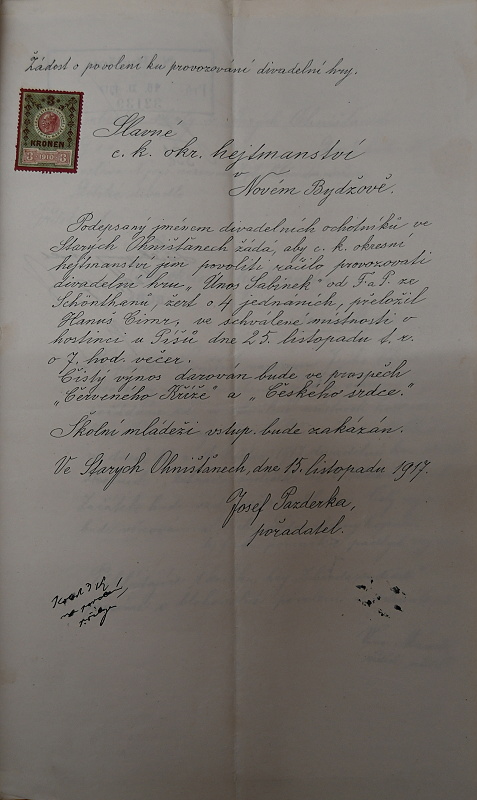 Žádost o povolení ku provozování divadelní hry.
3
KRONEN
3 1910 3
Slavné
c. k. okr. hejtmanství
v
Novém Bydžově.
Podepsaný jménem divadelních ochotníků ve
Starých Ohništanech žádá, aby c. k. okresní
hejtmanství jim povoliti ráčilo provozovati
divadelní hru „Únos Sabinek" od F. a P. ze
Schönthanů, žert o 4 jednáních, přeložil
Hanuš ve schválené místnosti v
hostinci u Píšů dne 25. listopadu t. r.
o 7. hod. večer.
Čistý výnos darován bude ve prospěch
„Červeného Kříže" a „Českého srdce."
Školní mládeži vstup bude zakázán.
Ve Starých Ohništanech, dne 15. listopadu 1917.
Josef Pazderka,
pořadatel.